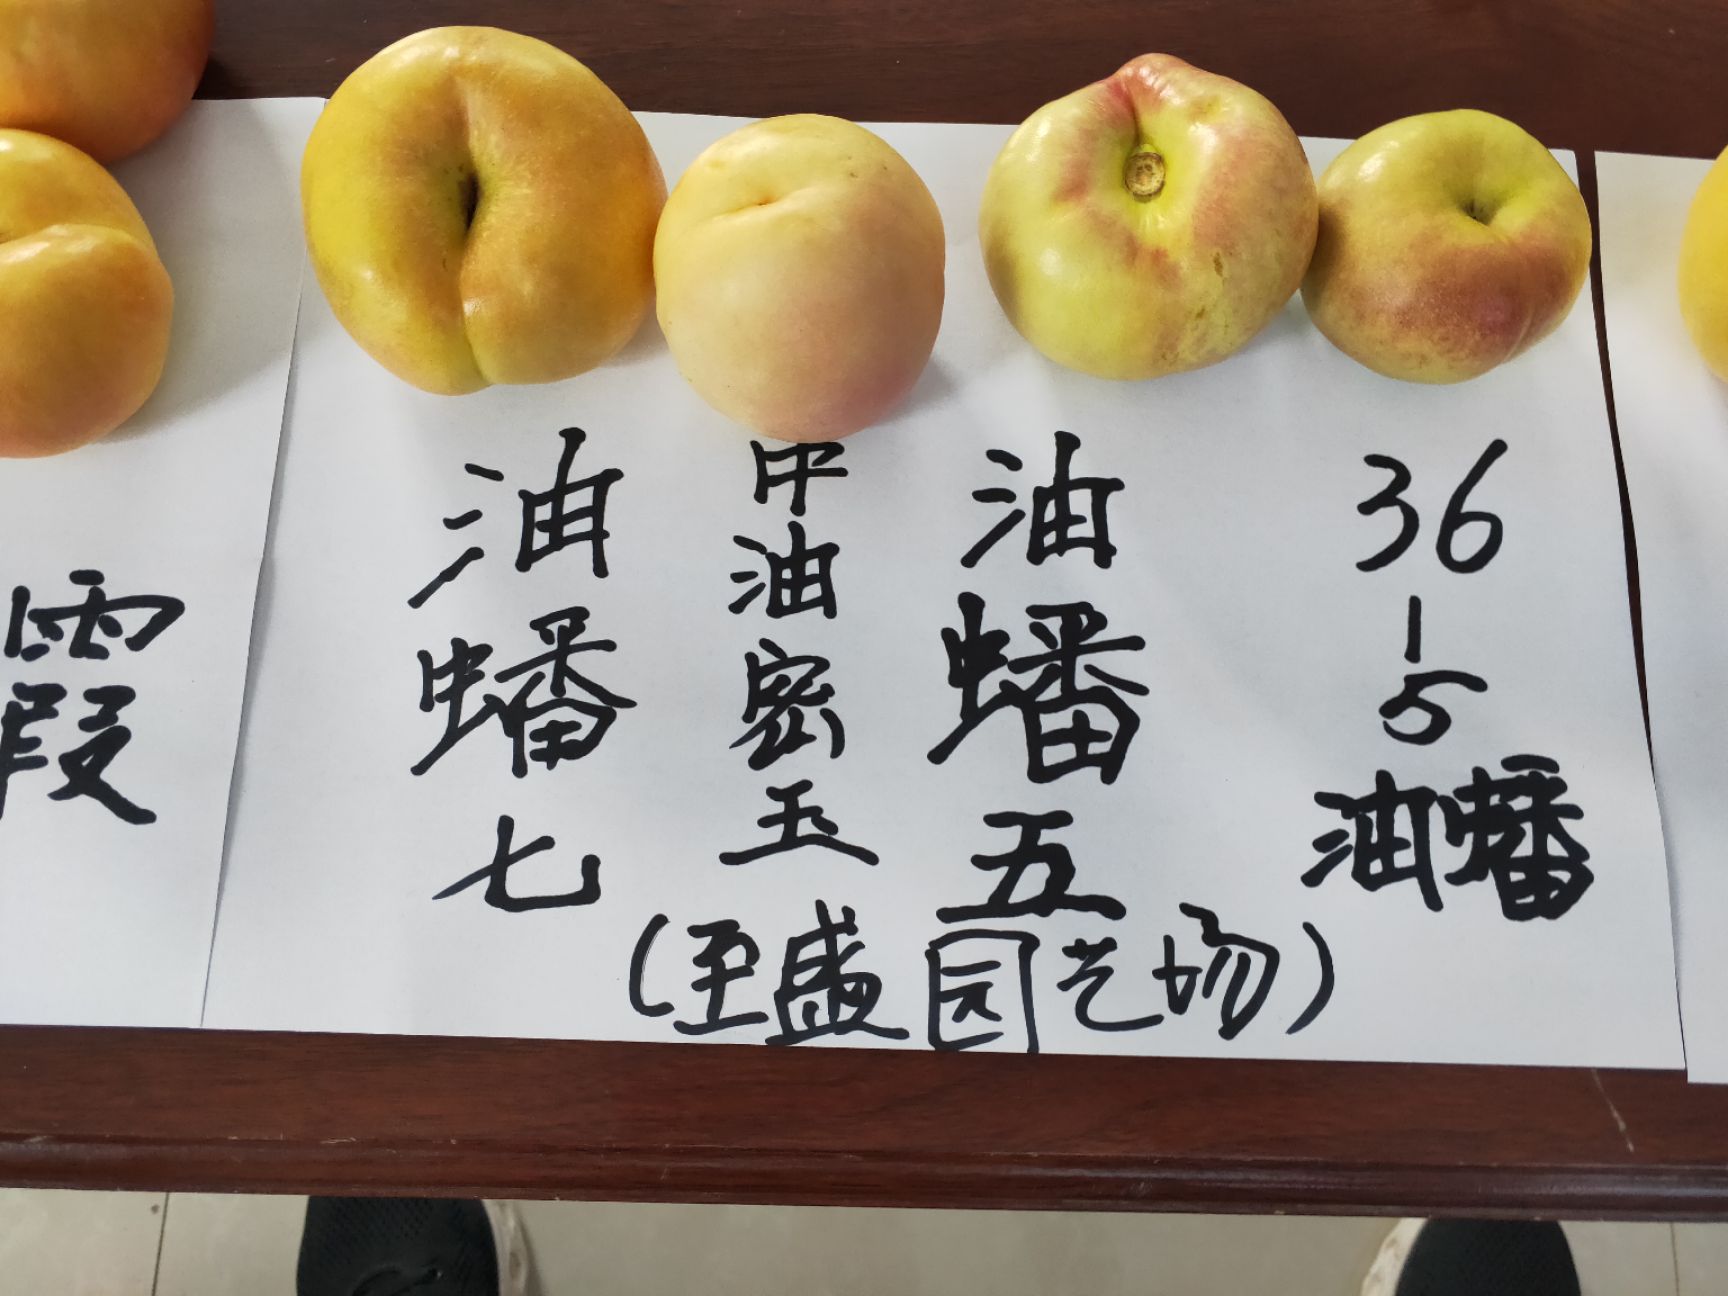 霞
油蟠七
中油密玉
油蟠五
36
1
5
油蟠
(至盛园艺场)